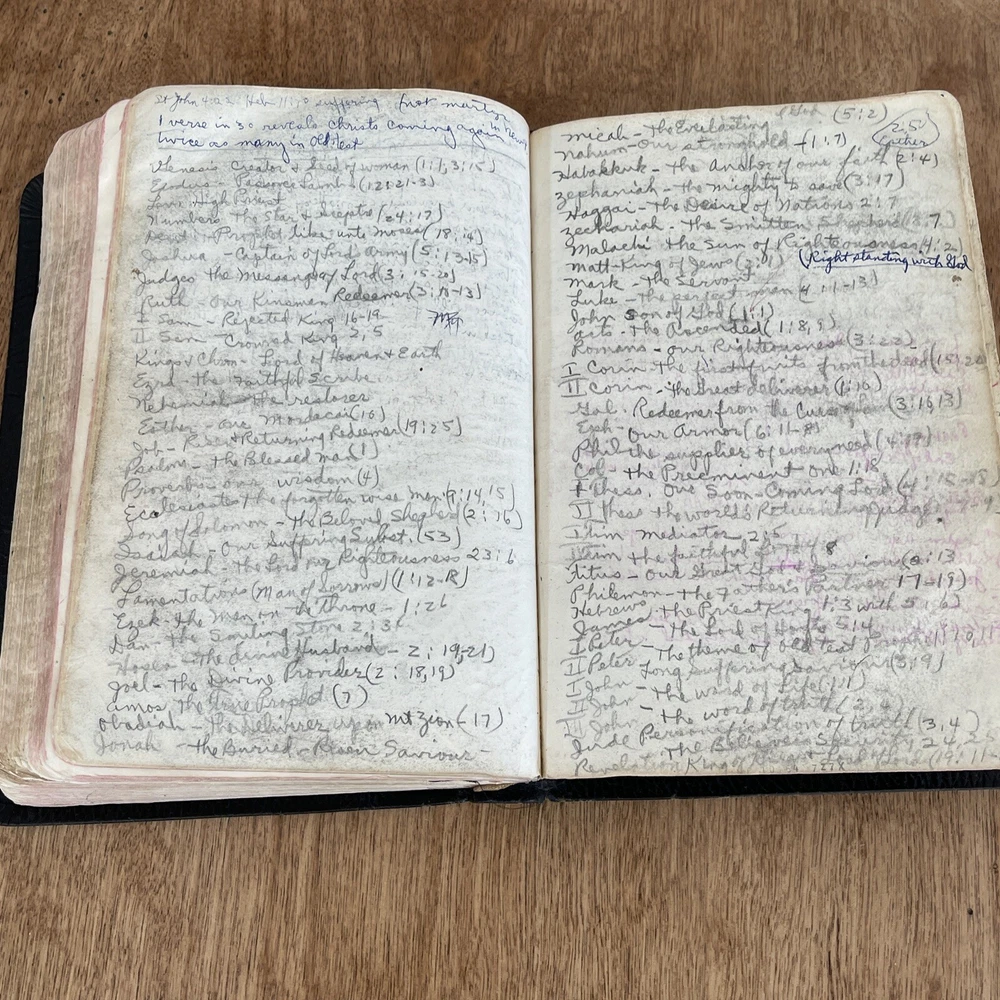 St John 4:22 Heb 11:10 suffering (not martyr
1 verse in 30 reveals Christs coming again in New
twice as many in Old Test
Genesis Creator & Seed of woman (1:1, 3:15)
Exodus - Passover Lamb (12:21-3)
High Priest
Numbers The Star & Septre (24:17)
Deut: Prophet like unto Moses (18:
Joshua - Captain of Lord Army (5:13-15)
Judges the Messenger of Lord (3: 15-20)
Ruth - Our Kinsman Redeemer (3:
I Sam - Rejected King 16-19
II Sam - Crowned King 2, 5
Kings & Chron - Lord of Heaven & Earth
Ezra - the Faithful Scribe
Nehemiah the restorer
Esther - our Mordacai (10)
Job - Risen & Returning Redeemer (19:25)
Psalms - the Blessed Man (1)
Proverbs our wisdom (4)
Ecclesiastes the forgotten wise man (9:14,15)
Song of Solomon - The Beloved Shepher (2:16)
Isaiah - Our Suffering Subst. (53)
Jeremiah - The Lord our Righteousness 23:6
Lamentations (Man of Sorrows) (1:12-
Ezek - the Man on the Throne - 1:26
Dan - The Smiting Stone 2:3
Hosea - The divine Husband - 2:19,21)
Joel - the Divine Provider (2:18,19)
Amos, the True Prophet (7)
Obadiah - The deliverer upon Mt Zion (-17)
Jonah - the Buried - Risen Saviour -
(5:2)
Micah - the Everlasting
Nahum - Our stronghold (1:7)
2:5
Habakkuk - the Anchor of our faith (2:4)
Zephaniah - the Mighty to save (3:17)
Haggai - the Desire of Nations 2:7
Zechariah - the Smitten Shepherd 7
Malachi the Sun of Righteousness (4:2)
(Right standing with God
Matt - King of Jews (2:1)
Mark - the Servant
Luke - the perfect man
John Son of God (1:1)
Acts - the Ascended (1:8,9)
Romans - our Righteousness (3:22)
I Corin the firstfruits from the dead (15:20
II Corin - the Great deliverer (1:10)
Gal. Redeemer from the Curse of law (3:10,13)
Eph - Our Armor (6:11-
Phil the supplier of every need (4:19)
Col - the Preeminent One 1:18
I Thess. Our Soon-Coming Lord (4:15-18
II Thess the world's Returning Judge
I Tim mediator 2:5
Tim the faithful
Titus - Our Great God & Saviour (2:13
Philemon - the Father's Partner 17-19)
Hebrews the Priest King 1:3 with 5 & 6)
James - The Lord of Hosts 5:4
I Peter - the theme of Old Test Prophets
II Peter Long Suffering Saviour (3:9)
I John - the word of Life (1:1)
John - the word of truth (2,4)
John Personification of truth (3,4)
Jude - The Believers Security 24
King of Kings & Lord of Lords (19: